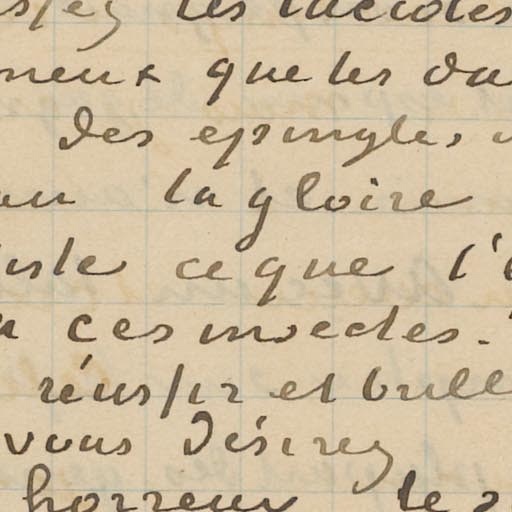 les
que les da
des epingles
la gloire
ce que l'
ces insectes.
réussir et brill
vous désirez
horreur